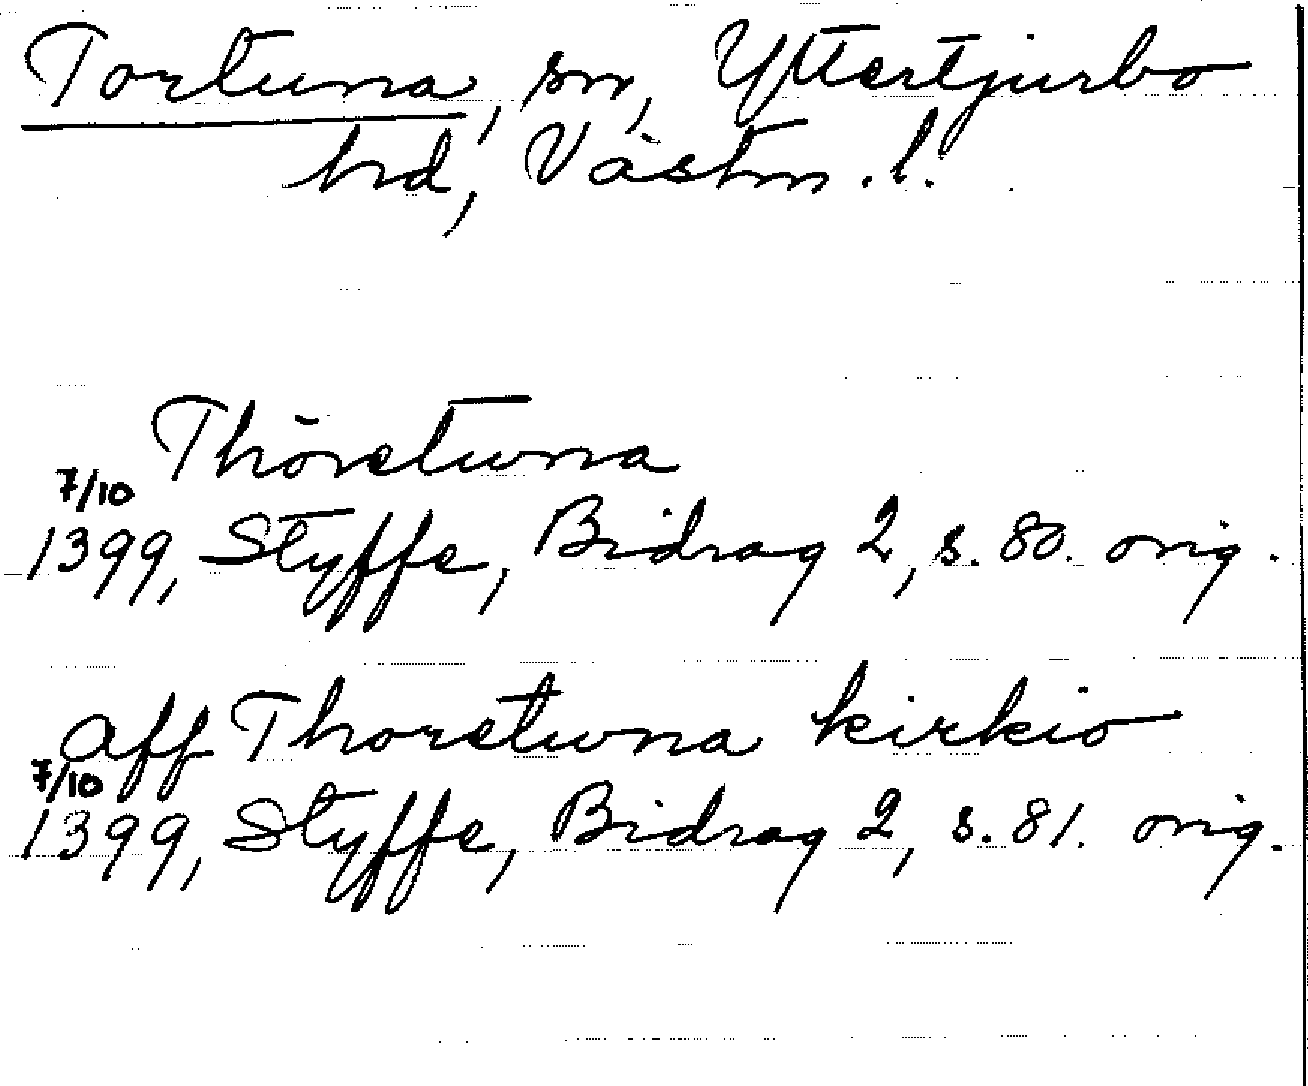 Tortuna, sn, Yttertjurbo
hd, Västm. l.
Thöretuna
7/10
1399, Styffe, Bidrag 2, s. 80. orig.
aff Thoretuna kirkio
7/10
1399, Styffe, Bidrag 2, s. 81. orig.